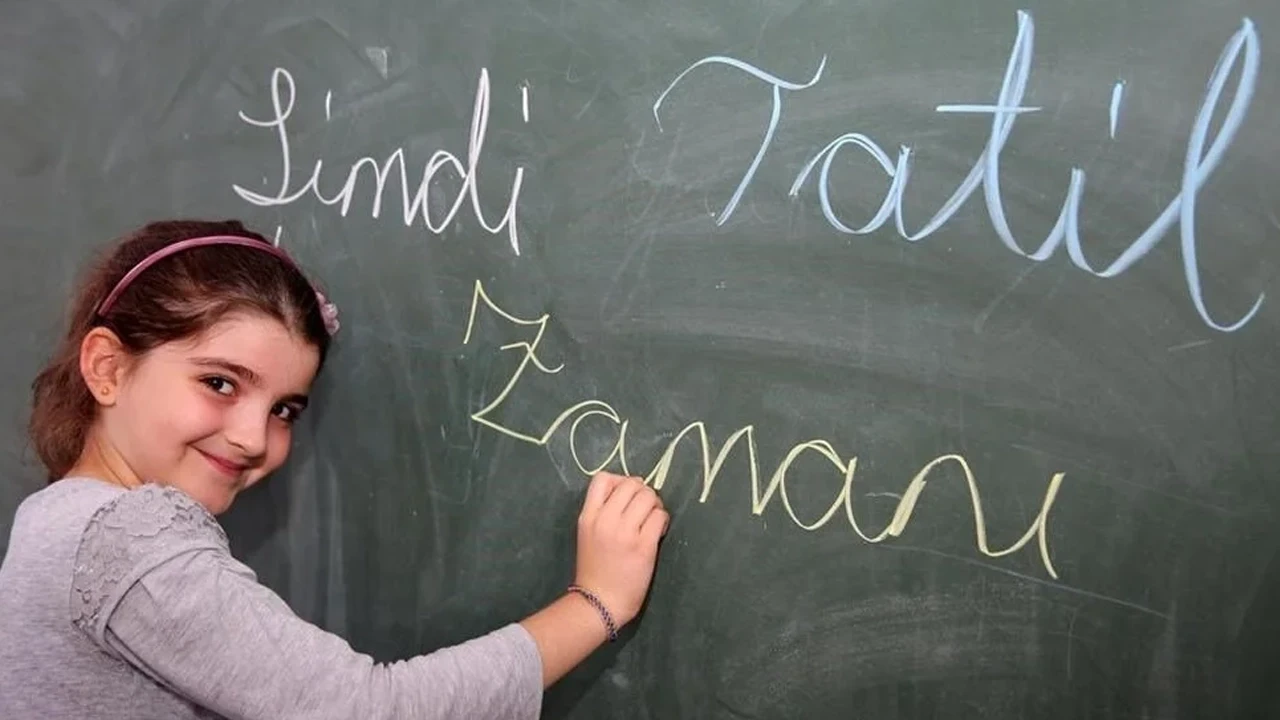 Şimdi Tatil
Zamanı